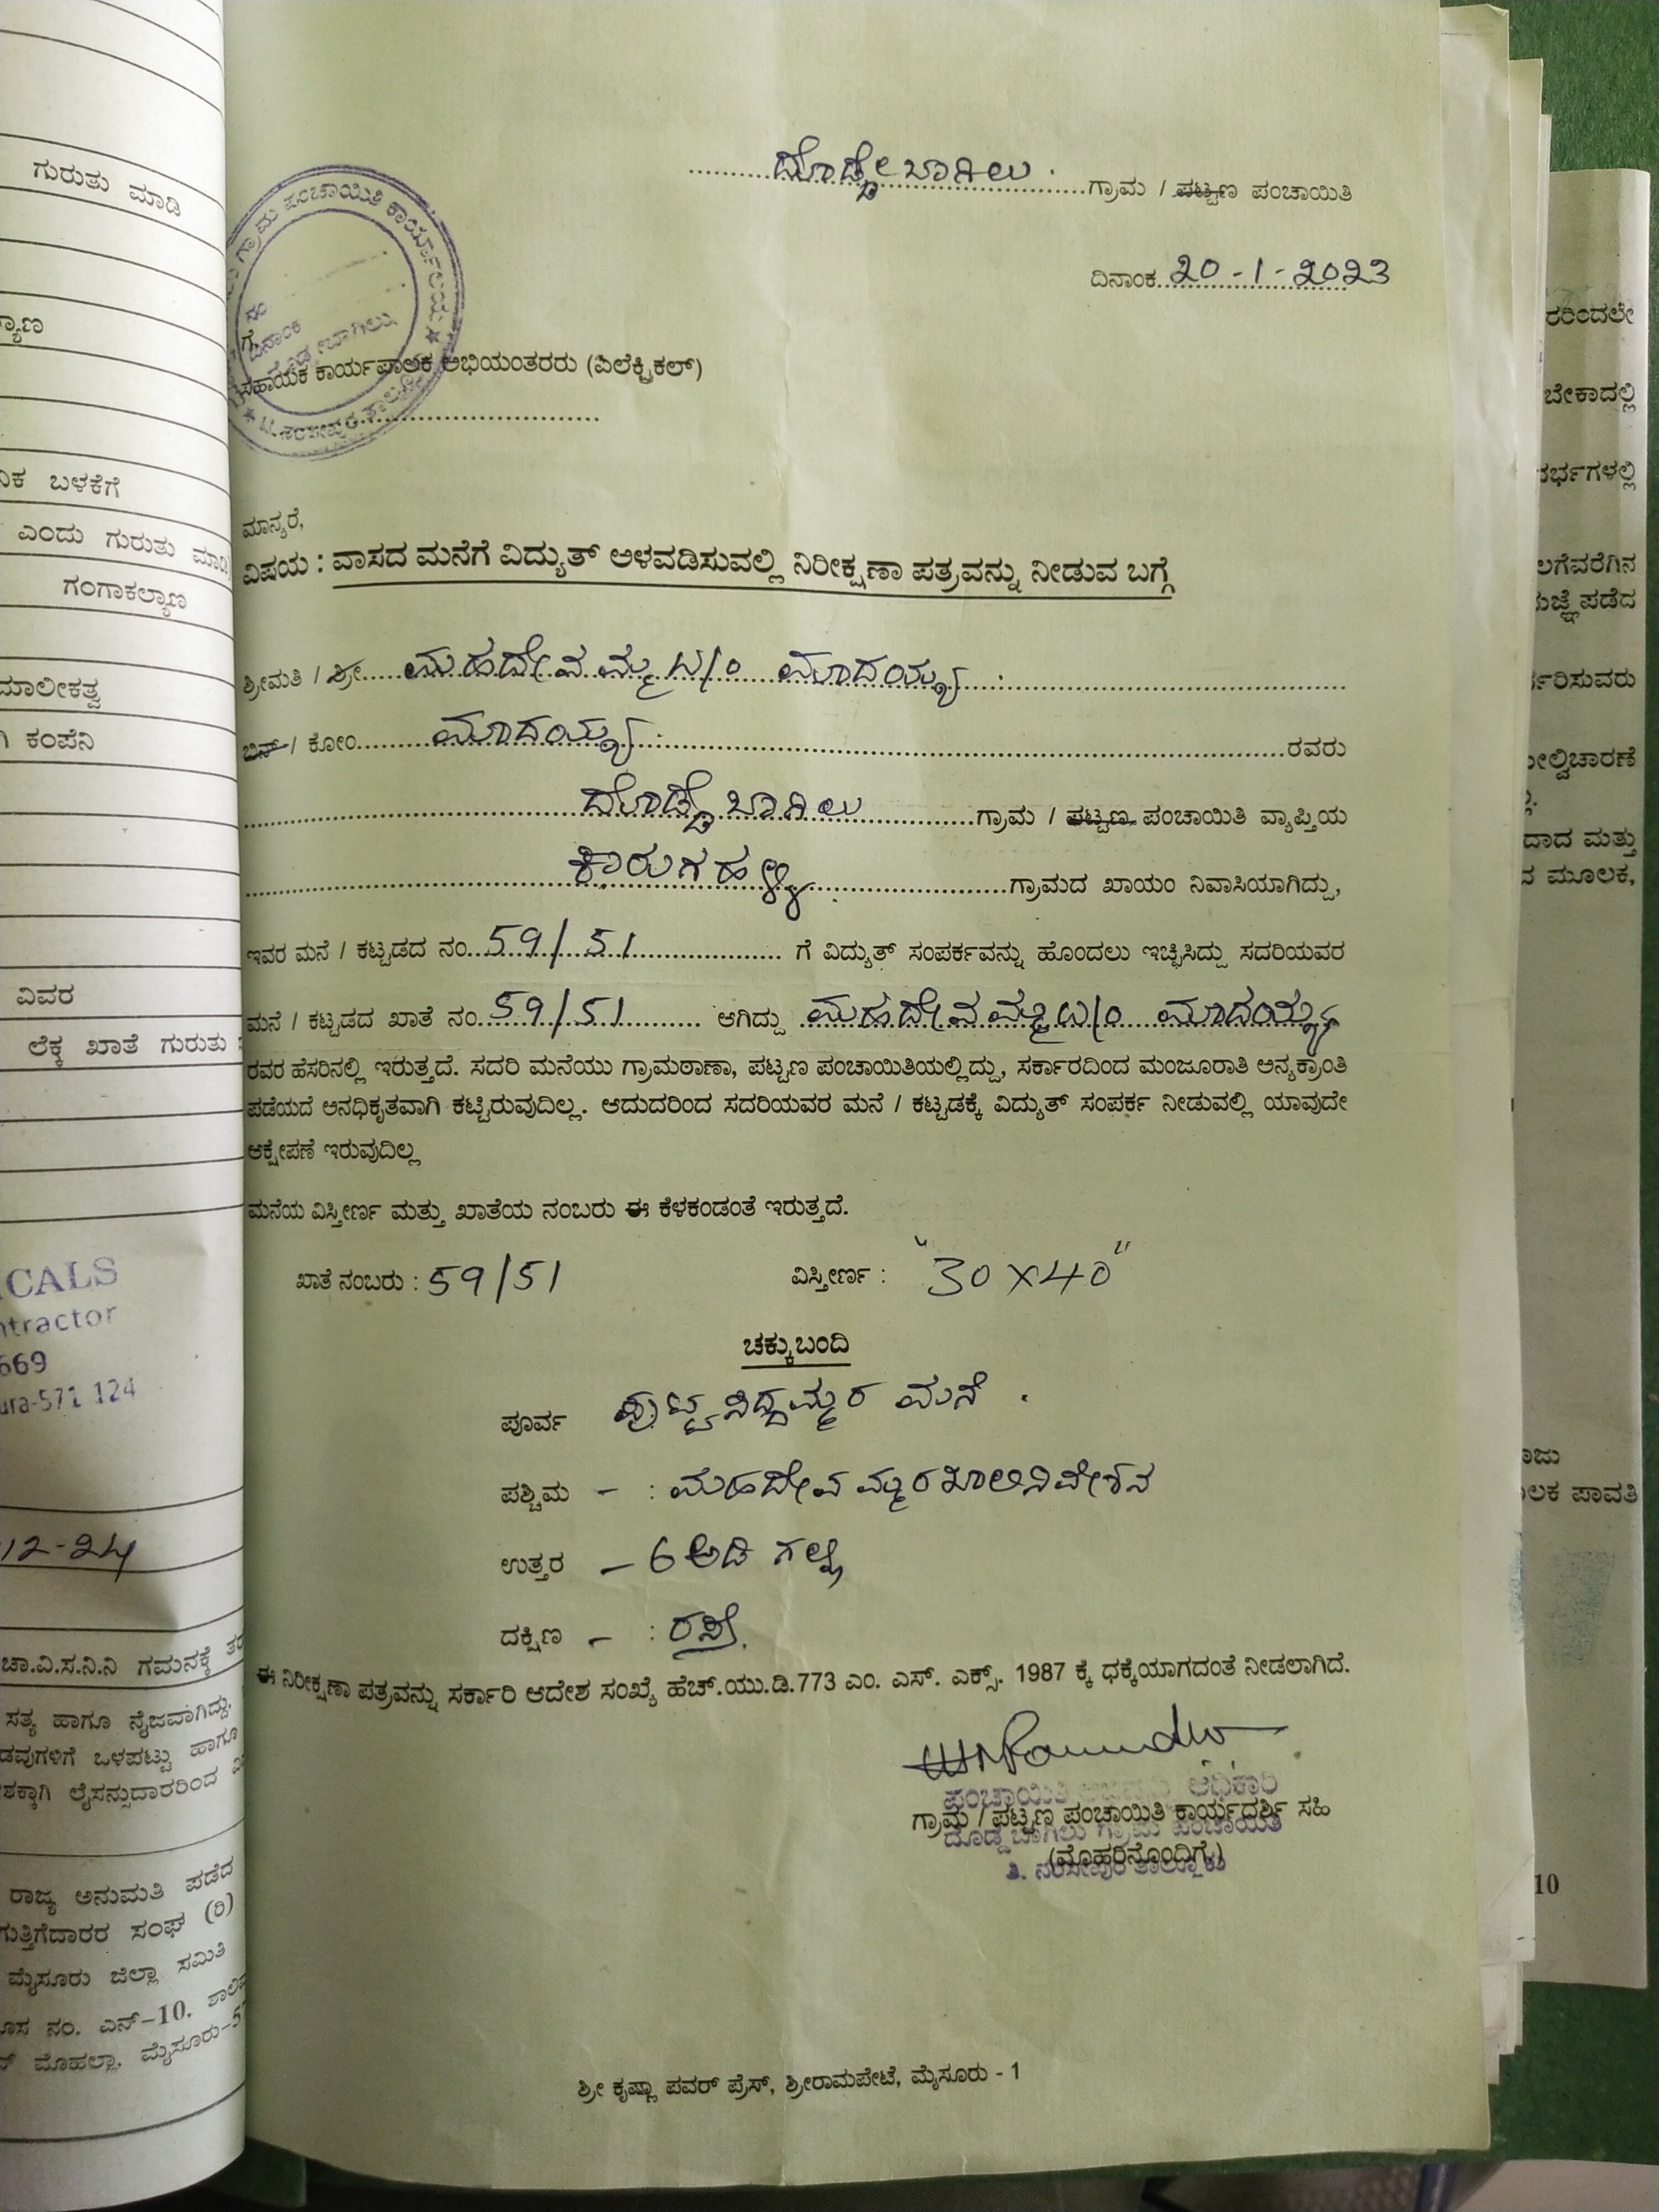 ದೊಡ್ಡೇಬಾಗಿಲು. ಗ್ರಾಮ / ಪಟ್ಟಣ ಪಂಚಾಯಿತಿ
ದಿನಾಂಕ 20-1-2023
ಗ್ರಾಮ ಪಂಚಾಯಿತಿ ಕಾರ್ಯಾಲಯ
ನಂ
ದಿನಾಂಕ
ಗೆ,
ಸಹಾಯಕ ಕಾರ್ಯಪಾಲಕ ಅಭಿಯಂತರರು (ಎಲೆಕ್ಟ್ರಿಕಲ್)
ಮಾನ್ಯರೆ,
ವಿಷಯ : ವಾಸದ ಮನೆಗೆ ವಿದ್ಯುತ್ ಅಳವಡಿಸುವಲ್ಲಿ ನಿರೀಕ್ಷಣಾ ಪತ್ರವನ್ನು ನೀಡುವ ಬಗ್ಗೆ
ಶ್ರೀಮತಿ / ಶ್ರೀ ಮಹದೇವಮ್ಮ W/o ಮಾದಯ್ಯ
ಬಿನ್ / ಕೋಂ ಮಾದಯ್ಯ ರವರು
ದೊಡ್ಡೆಬಾಗಿಲು ಗ್ರಾಮ / ಪಟ್ಟಣ ಪಂಚಾಯಿತಿ ವ್ಯಾಪ್ತಿಯ
ಕಾರುಗಹಳ್ಳಿ ಗ್ರಾಮದ ಖಾಯಂ ನಿವಾಸಿಯಾಗಿದ್ದು,
ಇವರ ಮನೆ / ಕಟ್ಟಡದ ನಂ. 59/51 ಗೆ ವಿದ್ಯುತ್ ಸಂಪರ್ಕವನ್ನು ಹೊಂದಲು ಇಚ್ಛಿಸಿದ್ದು ಸದರಿಯವರ
ಮನೆ / ಕಟ್ಟಡದ ಖಾತೆ ನಂ. 59/51 ಆಗಿದ್ದು ಮಹದೇವಮ್ಮ W/o ಮಾದಯ್ಯ
ರವರ ಹೆಸರಿನಲ್ಲಿ ಇರುತ್ತದೆ. ಸದರಿ ಮನೆಯು ಗ್ರಾಮಠಾಣಾ, ಪಟ್ಟಣ ಪಂಚಾಯಿತಿಯಲ್ಲಿದ್ದು, ಸರ್ಕಾರದಿಂದ ಮಂಜೂರಾತಿ ಅನ್ಯಕ್ರಾಂತಿ
ಪಡೆಯದೆ ಅನಧಿಕೃತವಾಗಿ ಕಟ್ಟಿರುವುದಿಲ್ಲ. ಆದುದರಿಂದ ಸದರಿಯವರ ಮನೆ / ಕಟ್ಟಡಕ್ಕೆ ವಿದ್ಯುತ್ ಸಂಪರ್ಕ ನೀಡುವಲ್ಲಿ ಯಾವುದೇ
ಆಕ್ಷೇಪಣೆ ಇರುವುದಿಲ್ಲ
ಮನೆಯ ವಿಸ್ತೀರ್ಣ ಮತ್ತು ಖಾತೆಯ ನಂಬರು ಈ ಕೆಳಕಂಡಂತೆ ಇರುತ್ತದೆ.
ಖಾತೆ ನಂಬರು : 59/51 ವಿಸ್ತೀರ್ಣ : "30 X 40"
ಚಕ್ಕುಬಂದಿ
ಪೂರ್ವ ಪುಟ್ಟಸಿದ್ದಮ್ಮರ ಮನೆ.
ಪಶ್ಚಿಮ - : ಮಹದೇವಮ್ಮರ ಖಾಲಿನಿವೇಶನ
ಉತ್ತರ - 6 ಅಡಿ ಗಲ್ಲಿ
ದಕ್ಷಿಣ - : ರಸ್ತೆ.
ಈ ನಿರೀಕ್ಷಣಾ ಪತ್ರವನ್ನು ಸರ್ಕಾರಿ ಆದೇಶ ಸಂಖ್ಯೆ ಹೆಚ್.ಯು.ಡಿ.773 ಎಂ. ಎಸ್. ಎಕ್ಸ್. 1987 ಕ್ಕೆ ಧಕ್ಕೆಯಾಗದಂತೆ ನೀಡಲಾಗಿದೆ.
ಗ್ರಾಮ / ಪಟ್ಟಣ ಪಂಚಾಯಿತಿ ಕಾರ್ಯದರ್ಶಿ ಸಹಿ
ದೊಡ್ಡಬಾಗಿಲು ಗ್ರಾಮ ಪಂಚಾಯಿತಿ
(ಮೊಹರಿನೊಂದಿಗೆ)
ತಿ. ನರಸೀಪುರ ತಾಲ್ಲೂಕು
ಶ್ರೀ ಕೃಷ್ಣಾ ಪವರ್ ಪ್ರೆಸ್, ಶ್ರೀರಾಮಪೇಟೆ, ಮೈಸೂರು - 1
ಗುರುತು ಮಾಡಿ
ಬಳಕೆಗೆ
ಎಂದು ಗುರುತು ಮಾಡಿ
ಗಂಗಾಕಲ್ಯಾಣ
ಮಾಲೀಕತ್ವ
ಕಂಪೆನಿ
ವಿವರ
ಲೆಕ್ಕ ಖಾತೆ ಗುರುತು
CALS
ntractor
669
ura-571 124
12-24
ಚಾ.ವಿ.ಸ.ನಿ.ನಿ ಗಮನಕ್ಕೆ
ಸತ್ಯ ಹಾಗೂ ನೈಜವಾಗಿದ್ದು,
ಒಳಪಟ್ಟು ಹಾಗೂ
ಲೈಸನ್ಸುದಾರರಿಂದ
ರಾಜ್ಯ ಅನುಮತಿ ಪಡೆದ
ಗುತ್ತಿಗೆದಾರರ ಸಂಘ (ರಿ)
ಮೈಸೂರು ಜಿಲ್ಲಾ ಸಮಿತಿ
ನಂ. ಎನ್-10.
ಮೊಹಲ್ಲಾ, ಮೈಸೂರು-5
ಬೇಕಾದಲ್ಲಿ
ಮತ್ತು
ಮೂಲಕ,
ಪಾವತಿ
10